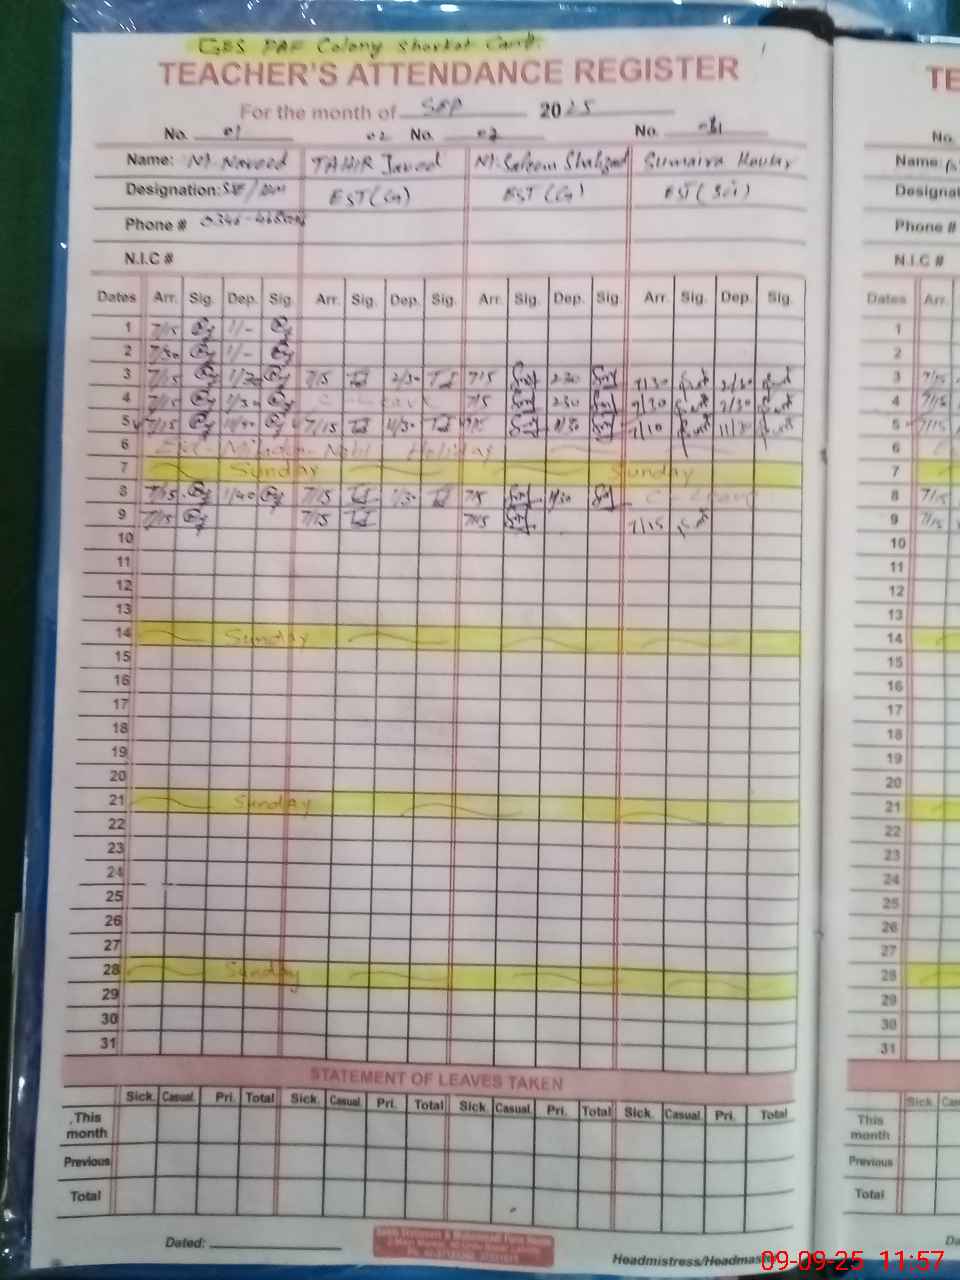 GES PAF Colony Shorkot Cantt.
TEACHER'S ATTENDANCE REGISTER
For the month of SEP 2025
No. 01 02 No. 03 No.
Name: M. Naveed TAHIR Javed M. Saleem Shahzad Sumaira
Designation: EST(G) EST(G) EST(Sci)
Phone # 0346-
N.I.C #
Dates Arr. Sig. Dep. Sig. Arr. Sig. Dep. Sig. Arr. Sig. Dep. Sig. Arr. Sig. Dep. Sig.
1 7/15 1/-
2 7/30 1/-
3 7/15 1/30 7/15 2/30 7/15 2:30 7/30 2/30
4 7/15 1/30 C-Leave 7/15 2:30 7/30 2/30
5 7/15 7/15 11/30 7/15 11/30 7/10 11/30
6 Eid-Milad-un-Nabi Holiday
7 Sunday Sunday
8 7/15 1/40 7/15 1/30 7/15 1/30 C-Leave
9 7/15 7/15 7/15 7/15
10
11
12
13
14 Sunday
15
16
17
18
19
20
21 Sunday
22
23
24
25
26
27
28 Sunday
29
30
31
STATEMENT OF LEAVES TAKEN
Sick. Casual. Pri. Total Sick. Casual. Pri. Total Sick. Casual. Pri. Total Sick. Casual. Pri. Total
This month
Previous
Total
Dated:
Headmistress/Headmaster
TE
No.
Name:
Designat
Phone #
N.I.C #
Dates Arr.
1
2
3 7/15
4 7/15
5 7/15
6
7
8 7/15
9 7/15
10
11
12
13
14
15
16
17
18
19
20
21
22
23
24
25
26
27
28
29
30
31
Sick Cas
This month
Previous
Total
Da
09-09-25 11:57